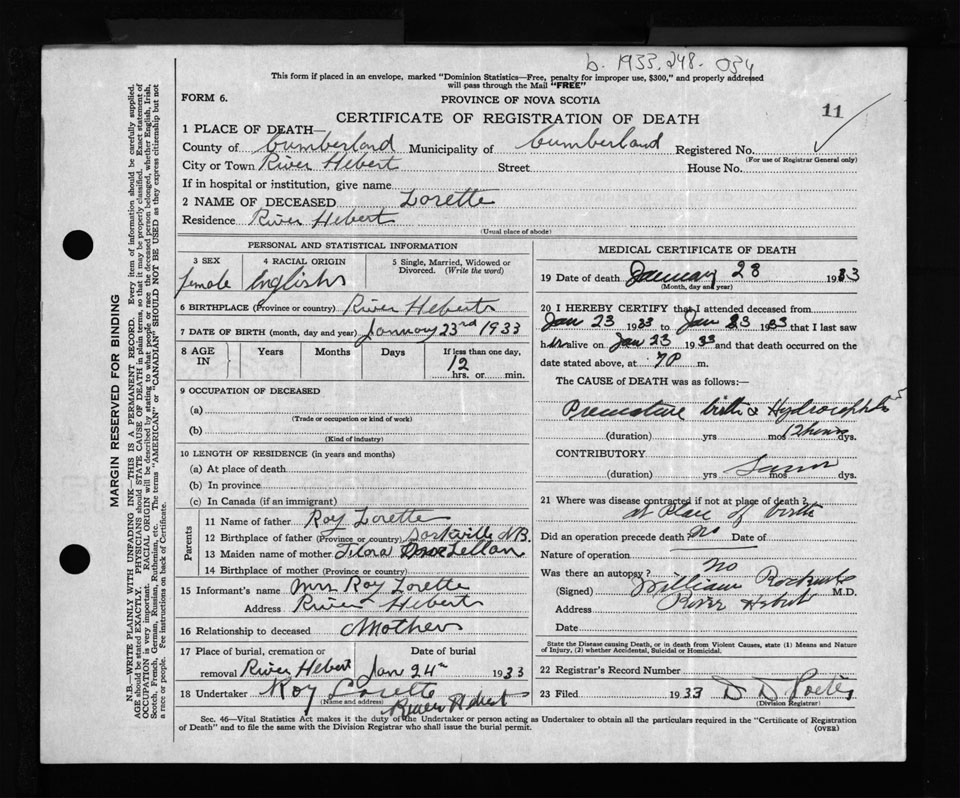 b. 1933.248. 034
This form if placed in an envelope, marked "Dominion Statistics—Free, penalty for improper use, $300," and properly addressed
will pass through the Mail "FREE"
FORM 6.
PROVINCE OF NOVA SCOTIA
11
CERTIFICATE OF REGISTRATION OF DEATH
1 PLACE OF DEATH—
County of Cumberland Municipality of Cumberland Registered No.
(For use of Registrar General only)
City or Town River Hebert Street House No.
If in hospital or institution, give name
2 NAME OF DECEASED Lorette
Residence River Hebert
(Usual place of abode)
PERSONAL AND STATISTICAL INFORMATION
3 SEX 4 RACIAL ORIGIN 5 Single, Married, Widowed or
Divorced. (Write the word)
female English
6 BIRTHPLACE (Province or country) River Hebert
7 DATE OF BIRTH (month, day and year) January 23rd 1933
8 AGE IN Years Months Days If less than one day,
12
hrs. or min.
9 OCCUPATION OF DECEASED
(a)
(Trade or occupation or kind of work)
(b)
(Kind of industry)
10 LENGTH OF RESIDENCE (in years and months)
(a) At place of death
(b) In province
(c) In Canada (if an immigrant)
Parents
11 Name of father Roy Lorette
12 Birthplace of father (Province or country) N.B.
13 Maiden name of mother Flora
14 Birthplace of mother (Province or country)
15 Informant's name Mrs Roy Lorette
Address River Hebert
16 Relationship to deceased Mother
17 Place of burial, cremation or Date of burial
removal River Hebert Jan 24th 1933
18 Undertaker Roy Lorette
(Name and address) River Hebert
MEDICAL CERTIFICATE OF DEATH
19 Date of death January 23 1933
(Month, day and year)
20 I HEREBY CERTIFY that I attended deceased from
Jan 23 1933 to Jan 23 1933 that I last saw
her alive on Jan 23 1933 and that death occurred on the
date stated above, at 7 P m.
The CAUSE OF DEATH was as follows:—
Premature birth &
(duration) yrs mos 12 hours dys.
CONTRIBUTORY
(duration) yrs mos dys.
21 Where was disease contracted if not at place of death?
at Place of birth
Did an operation precede death? no Date of
Nature of operation
Was there an autopsy? no
(Signed) William M.D.
Address River Hebert
Date
State the Disease causing Death, or in death from Violent Causes, state (1) Means and Nature
of Injury, (2) whether Accidental, Suicidal or Homicidal.
22 Registrar's Record Number
23 Filed 1933 D D
(Division Registrar)
Sec. 46—Vital Statistics Act makes it the duty of the Undertaker or person acting as Undertaker to obtain all the particulars required in the "Certificate of Registration
of Death" and to file the same with the Division Registrar who shall issue the burial permit.
(OVER)
MARGIN RESERVED FOR BINDING
N.B.—WRITE PLAINLY WITH UNFADING INK—THIS IS A PERMANENT RECORD. Every item of information should be carefully supplied.
AGE should be stated EXACTLY. PHYSICIANS should STATE CAUSE OF DEATH in plain terms, so that it may be properly classified. Exact statement of
OCCUPATION is very important. RACIAL ORIGIN will be described by stating to what people or race the deceased person belonged, whether English, Irish,
Scotch, French, German, Russian, Ruthenian, etc. The terms "AMERICAN" or "CANADIAN" SHOULD NOT BE USED as they express citizenship but not
a race or people. See instructions on back of Certificate.